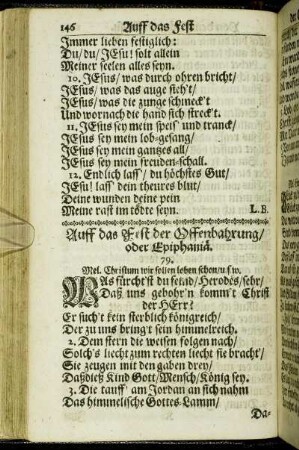 146 Auff das Fest
Immer lieben festiglich:
Du/ du/ JEsu! solt allein
Meiner seelen alles seyn.
10. JEsus/ was durch ohren bricht/
JEsus/ was das auge sieh't/
JEsus/ was die zunge schmeck't
Und wornach die hand sich streck't.
11. JEsus sey mein speis' und tranck/
JEsus sey mein lob-gesang/
JEsus sey mein gantzes all/
JEsus sey mein freuden-schall.
12. Endlich lass'/ du höchstes Gut/
JEsu! lass' dein theures blut/
Deine wunden deine pein
Meine rast im tödte seyn. L.B.
Auff das Fest der Offenbahrung/
oder Epiphaniä.
79.
Mel. Christum wir sollen loben schon/u.s.w.
WAs fürcht'st du feind/ Herodes/ sehr/
Daß uns gebohr'n komm't Christ
der HErr?
Er such't kein sterblich königreich/
Der zu uns bring't sein himmelreich.
2. Dem stern die weisen folgen nach/
Solch's liecht zum rechten liecht sie bracht'/
Sie zeugen mit den gaben drey/
Daß dieß Kind Gott/ Mensch/ König sey.
3. Die tauff' am Jordan an sich nahm
Das himmelische Gottes Lamm/
Da-